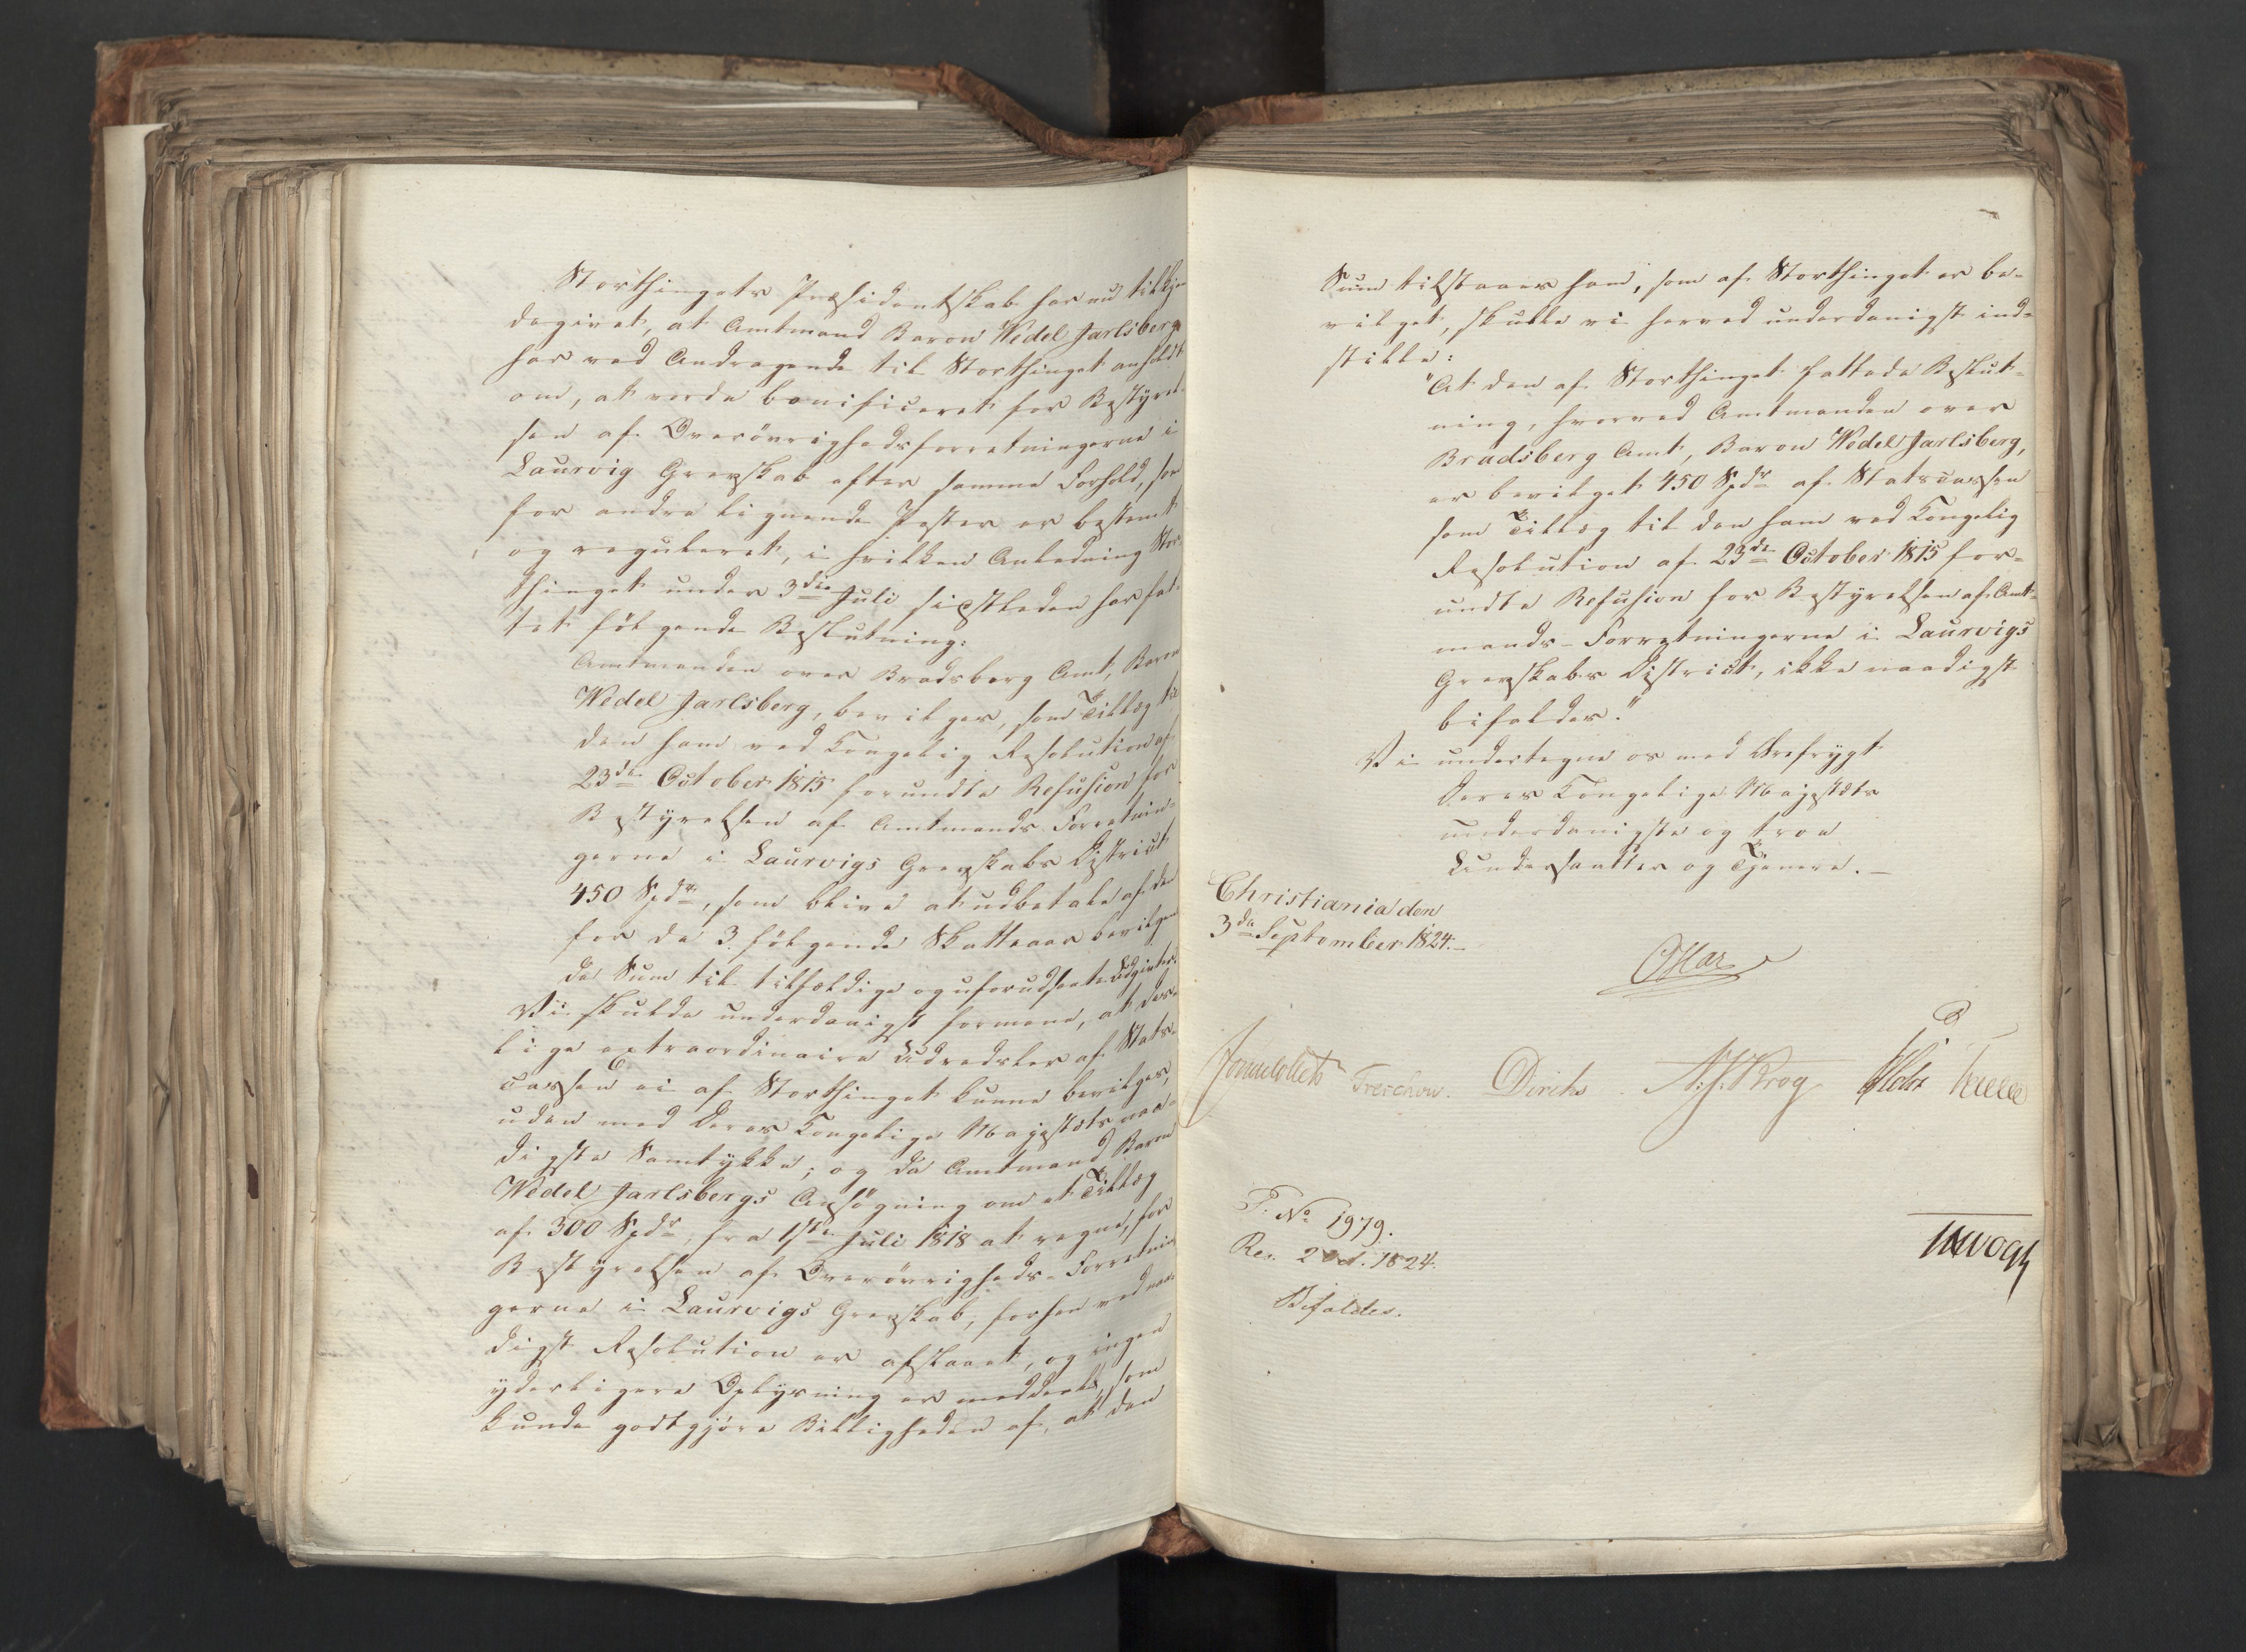 Storthingets Præsidentskab har nu tilkjen-
degivet, at Amtmand Baron Wedel Jarlsberg
har ved Andragende til Storthinget anholdt
om, at vorde bonificeret for Bestyrel-
sen af Overøvrighedsforretningerne i
Laurvig Grevskab efter samme Forhold, som
for andre lignende Poster er bestemt
og reguleret, i hvilken Anledning Stor-
thinget under 3die Juli sidstleden har fat-
tet følgende Beslutning:
Amtmanden over Bradsberg Amt, Baron
Wedel Jarlsberg, bevilges, som Tillæg til
den ham ved Kongelig Resolution af
23de October 1815 forundte Refusion for
Bestyrelsen af Amtmands Forretnin-
gerne i Laurvigs Grevskabs District
450 Spdr, som blive at udbetale af den
for de 3 følgende Skatteaar bevilge-
de Sum til tilfældige og uforudseete Udgivter.
Vi skulde underdanigst formene, at des-
lige extraordinaire Udredsler af Stats-
cassen ei af Storthinget kunne bevilges,
uden med Deres Kongelige Majestæts naa-
digste Samtykke; og da Amtmand Baron
Wedel Jarlsbergs Ansøgning om et Tillæg
af 300 Spdr, fra 1ste Juli 1818 at regne, for
Bestyrelsen af Overøvrigheds-Forretnin-
gerne i Laurvigs Grevskab, forhen ved naa-
digst Resolution er afslaaet, og ingen
yderligere Oplysning er meddeelt, som
kunde godtgjøre Billigheden af, at den
Sum tilstaaes ham, som af Storthinget er be-
vilget, skulle vi herved underdanigst ind-
stille:
"At den af Storthinget fattede Beslut-
ning, hvorved Amtmanden over
Bradsberg Amt, Baron Wedel Jarlsberg,
er bevilget 450 Spdr af Statscassen
som Tillæg til den ham ved Kongelig
Resolution af 23de October 1815 for-
undte Refusion for Bestyrelsen af Amt-
mands-Forretningerne i Laurvigs
Grevskabs District, ikke naadigst
bifaldes."
Vi undertegne os med Ærefrygt
Deres Kongelige Majestæts
underdanigste og troe
Undersaatter og Tjenere.
Christiania den
3de September 1824.
Oskar
Sommerhielm Treschow. Diriks N. J. Krog Holst
P. No 1979.
Res. 2 Oct. 1824.
Bifaldes.
Vogt